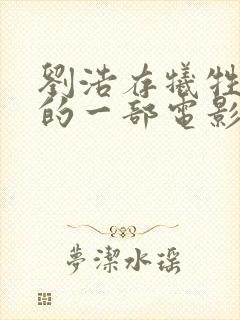 劉浩存犧牲
的一部電影
夢潔水瑤